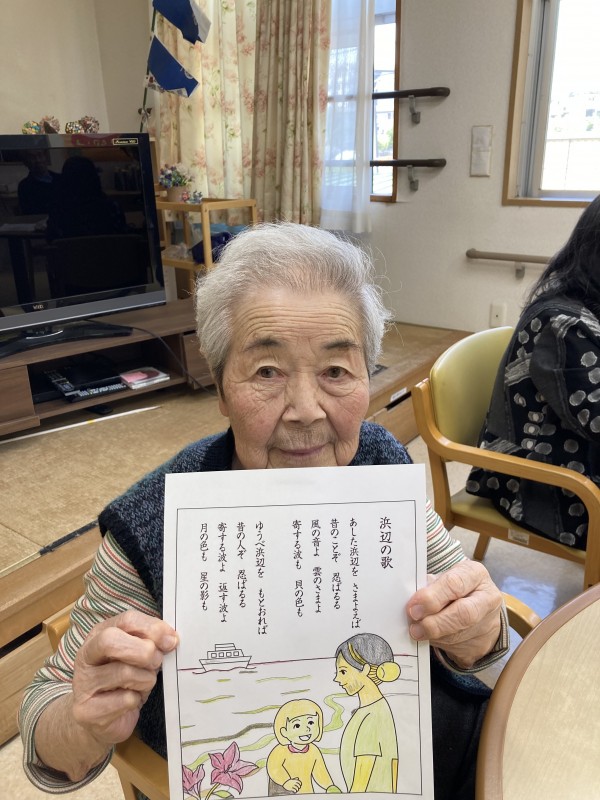 浜辺の歌
あした浜辺を さまよえば
昔のことぞ 忍ばるる
風の音よ 雲のさまよ
寄する波も 貝の色も
ゆうべ浜辺を もとおれば
昔の人ぞ 忍ばるる
寄する波よ 返す波よ
月の色も 星の影も